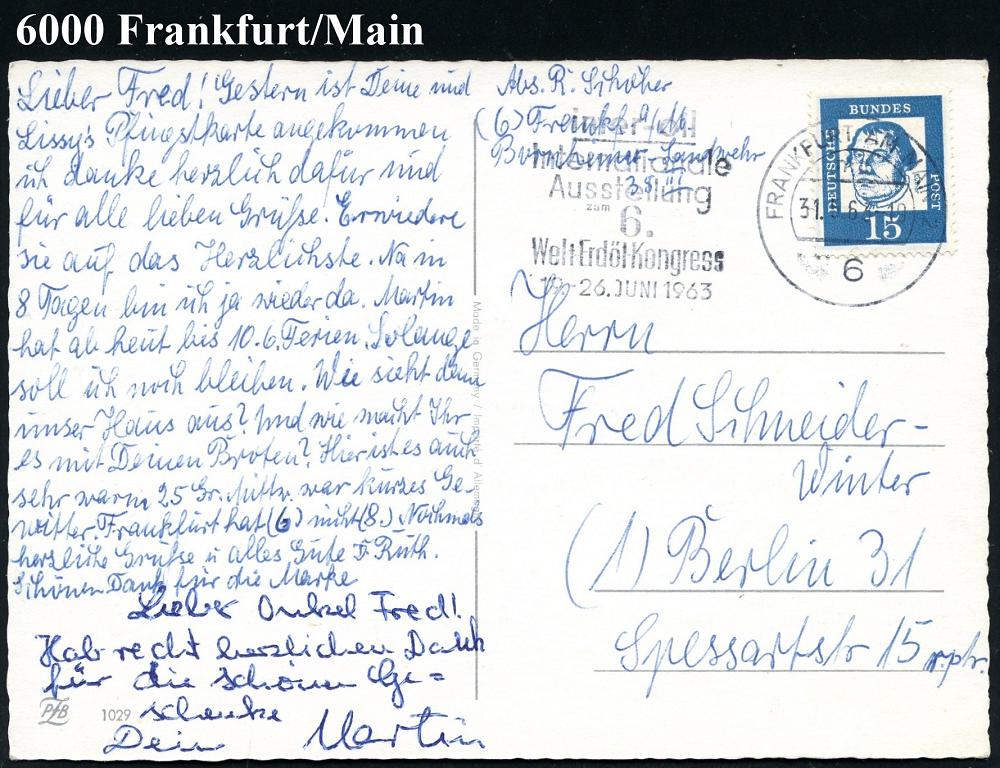 6000 Frankfurt/Main
Lieber Fred! Gestern ist Deine und
Lissy's Pfingstkarte angekommen
ich danke herzlich dafür und
für alle lieben Grüße. Erwiedere
sie auf das Herzlichste. Na in
8 Tagen bin ich ja wieder da. Martin
hat ab heut bis 10.6. Ferien. Solange
soll ich noch bleiben. Wie sieht denn
unser Haus aus? Und wie macht Ihr
es mit Deinen Broten? Hier ist es auch
sehr warm 25 Gr. Mittw. war kurzes Ge-
witter. Frankfurt hat (6) nicht (8.) Nochmals
herzliche Grüße u alles Gute D. Ruth.
Schönen Dank für die Marke
Lieber Onkel Fred!
Hab recht herzlichen Dank
für die schönen Ge=
schenke
Dein Martin
PfB 1029
Made in Germany / Imprimé d' Allemagne
Abs. R. Schöher
(6) Frankf. a/M
Bornheimer-Landwehr
38
inter-oil
Internationale
Ausstellung
zum
6.
Welt Erdöl Kongress
19.-26. JUNI 1963
FRANKFURT AM MAIN
6
DEUTSCHE
BUNDES
POST
15
Herrn
Fred Schneider-
Winter
(1) Berlin 31
Spessartstr 15 r. ptr.